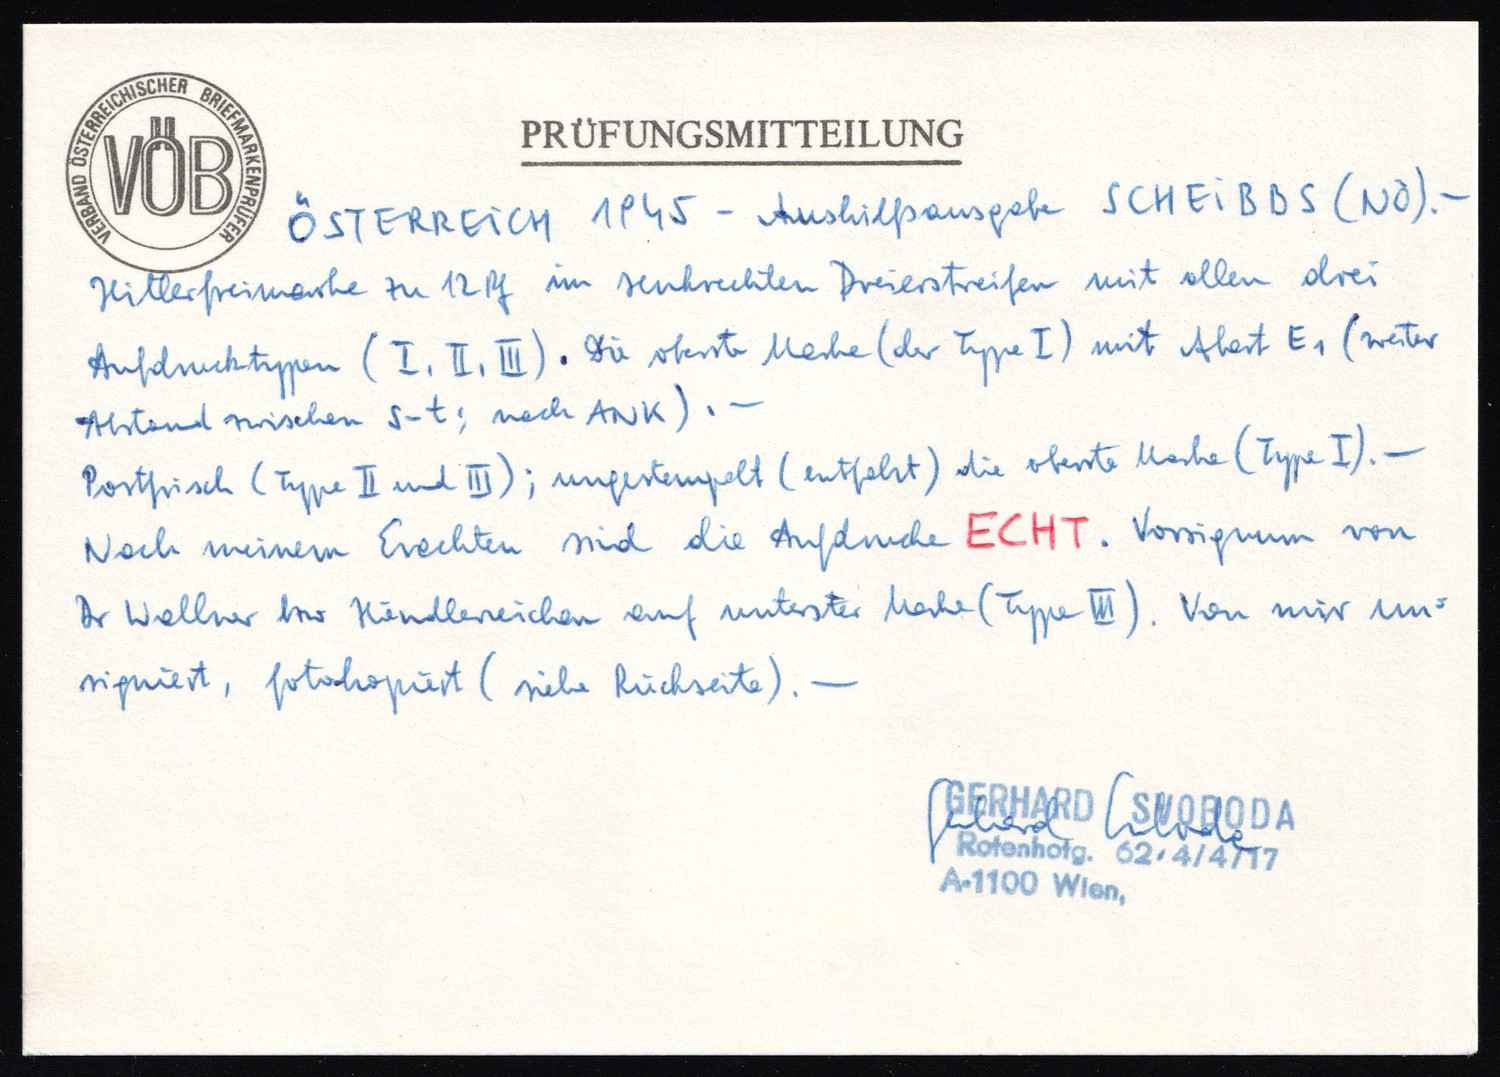 VERBAND ÖSTERREICHISCHER BRIEFMARKENPRÜFER
VÖB
PRÜFUNGSMITTEILUNG
ÖSTERREICH 1945 - Aushilfsausgabe SCHEiBBS (NÖ).-
Hitlerfreimarke zu 12 Pf im senkrechten Dreierstreifen mit allen drei
Aufdrucktypen (I, II, III). Die oberste Marke (der Type I) mit Abart E1 (weiter
Abstand zwischen s-t; nach ANK).-
Postfrisch (Type II und III); ungestempelt (entfalzt) die oberste Marke (Type I).-
Nach meinem Erachten sind die Aufdrucke ECHT. Vorsignum von
Dr Wallner bzw Händlerzeichen auf unterster Marke (Type III). Von mir un=
signiert, fotokopiert (siehe Rückseite).-
GERHARD SVOBODA
Gerhard Svoboda
Rotenhofg. 62/4/4/17
A-1100 Wien,